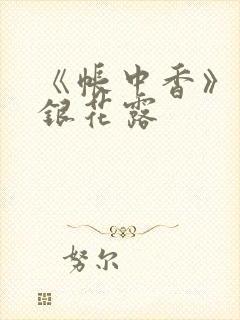 《帐中香》
银花露
努尔